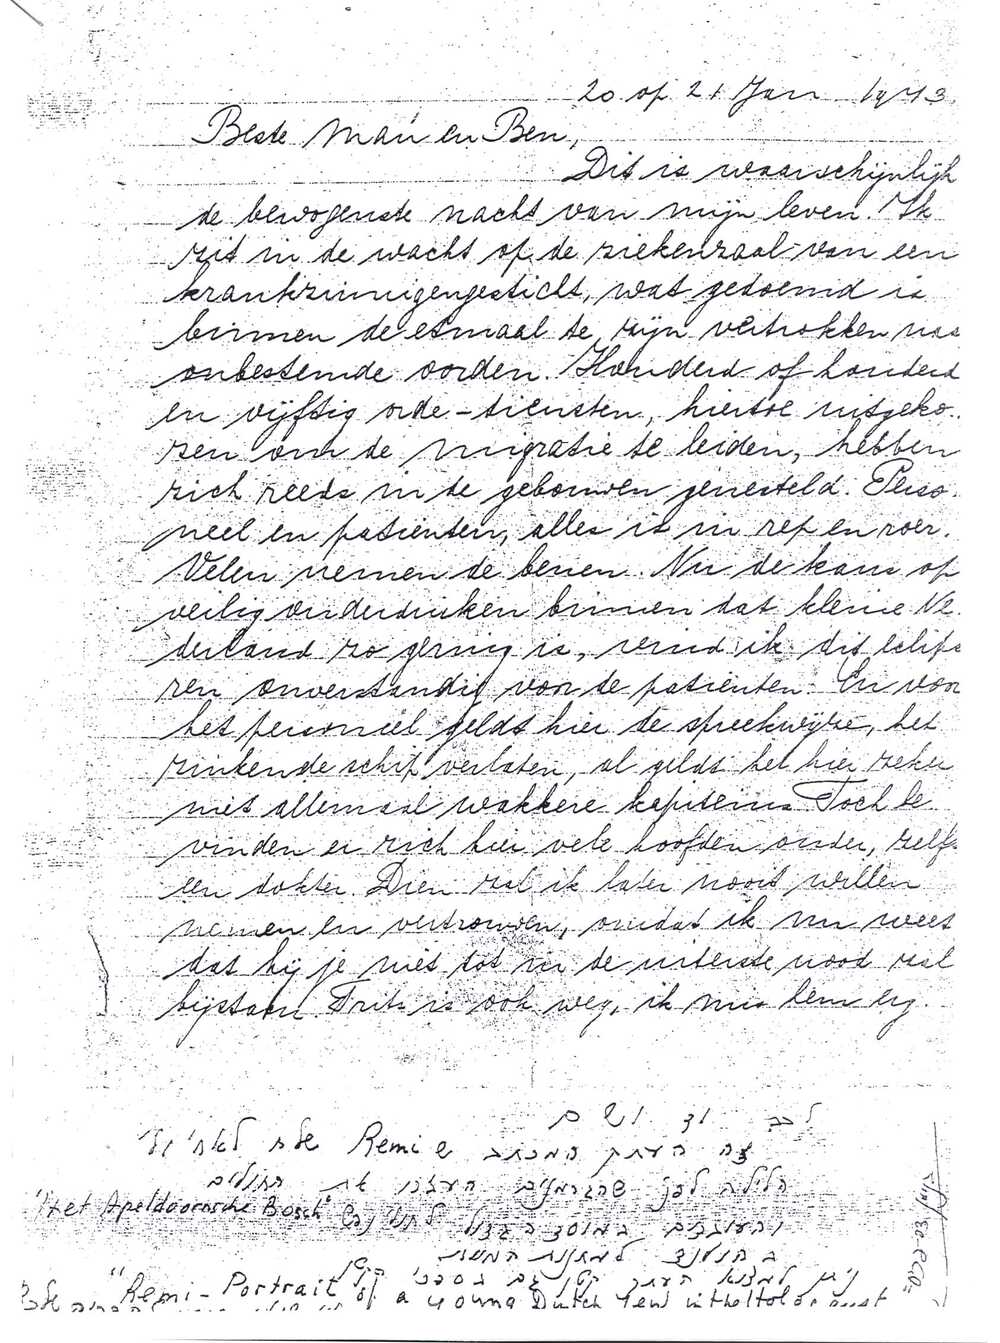 20 op 21 Jan 1943.
Beste Mau en Ben,
Dit is waarschijnlijk
de bewogenste nacht van mijn leven. Ik
zit in de wacht op de ziekenzaal van een
krankzinnigengesticht, wat gedoemd is
binnen de etmaal te zijn vertrokken naa
onbestemde oorden. Honderd of honderd
en vijftig orde-diensten, hiertoe uitgeko-
zen om de migratie te leiden, hebben
zich reeds in de gebouwen genesteld. Perso-
neel en patienten, alles is in rep en roer.
Velen nemen de benen. Nu de kans op
veilig onderduiken binnen dat kleine Ne-
derland zo gering is, vind ik dit echipe
ren onverstandig voor de patienten. En voor
het personeel geldt hier de spreekwijze, het
zinkende schip verlaten, al geldt het hier zeker
niet allemaal wakkere kapiteins. Toch be
vinden er zich hier vele hoofden onder, zelfs
een dokter. Dien zal ik later nooit willen
nemen en vertrouwen, omdat ik nu weet
dat hij je niet tot in de uiterste nood zal
bijstaan. Frits is ook weg, ik mis hem erg.
לכב' יד ושם
זה העתק המכתב ש Remi שלח לאחיו
הלילה לפני שהגרמנים העלו את החולים
"Het Apeldoornsche Bosch" והעובדים במוסד הגדול לחולי נפש
בהולנד למחנות המוות
ניתן למצוא העתק קטן גם בספרי הקטן
"Remi - Portrait of a young Dutch Jew in the